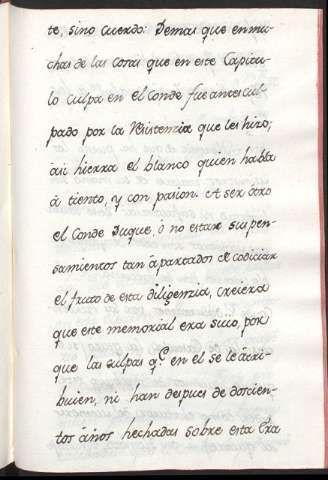 te, sino cuerdo: Demas que en mu-
chas de las cosas que en este Capitu-
lo culpa en el Conde fue antes cul-
pado por la Resistenzia que les hizo;
äsi hierra el blanco quien habla
â tiento, y con pasion. A ser otro
el Conde Duque, ò no estar sus pen-
samientos tan âpartados de codiciar
el fruto de esta diligenzia, creiera
que este memorial era suio, por
que las culpas q.e en el se le âtri-
buien, ni han despues de doscien-
tos años hechadas sobre esta Era